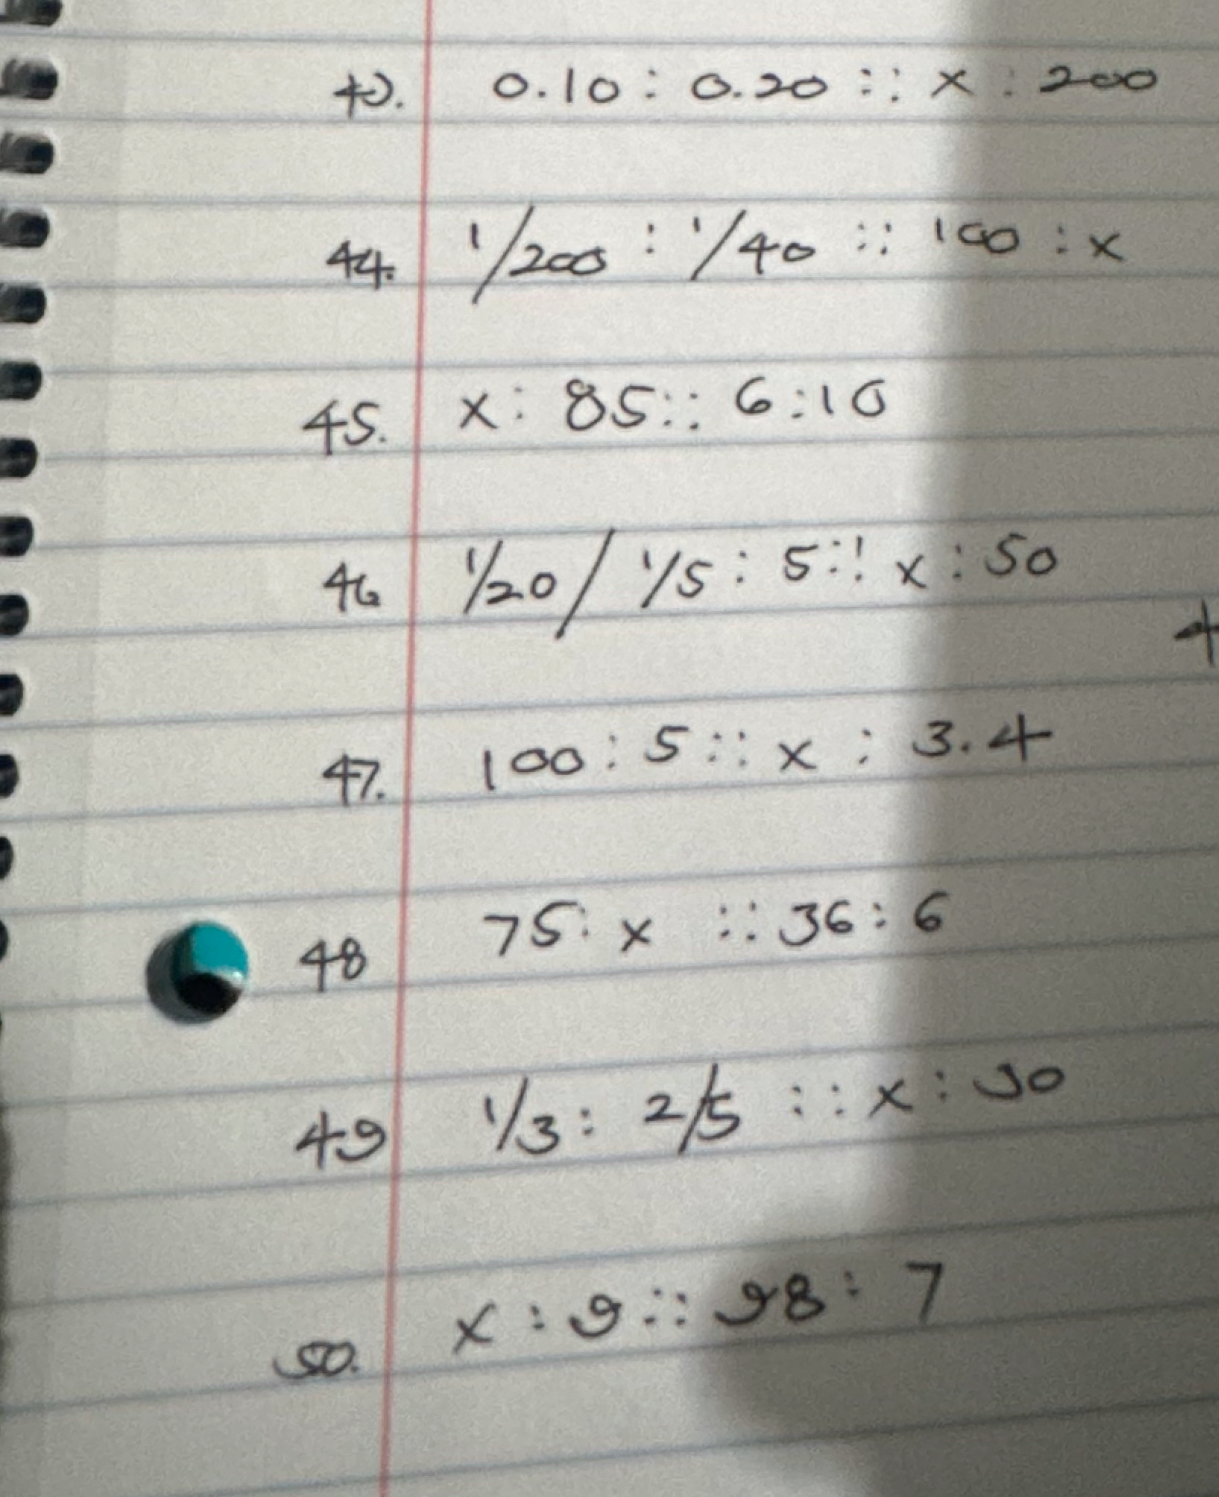 43. 0.10 : 0.20 :: x : 200
44. 1/200 : 1/40 :: 100 : x
45. x : 85 :: 6 : 10
46 1/20 / 1/5 : 5 :: x : 50
4
47. 100 : 5 :: x : 3.4
48 75 : x :: 36 : 6
49 1/3 : 2/5 :: x : 30
50. x : 9 :: 98 : 7